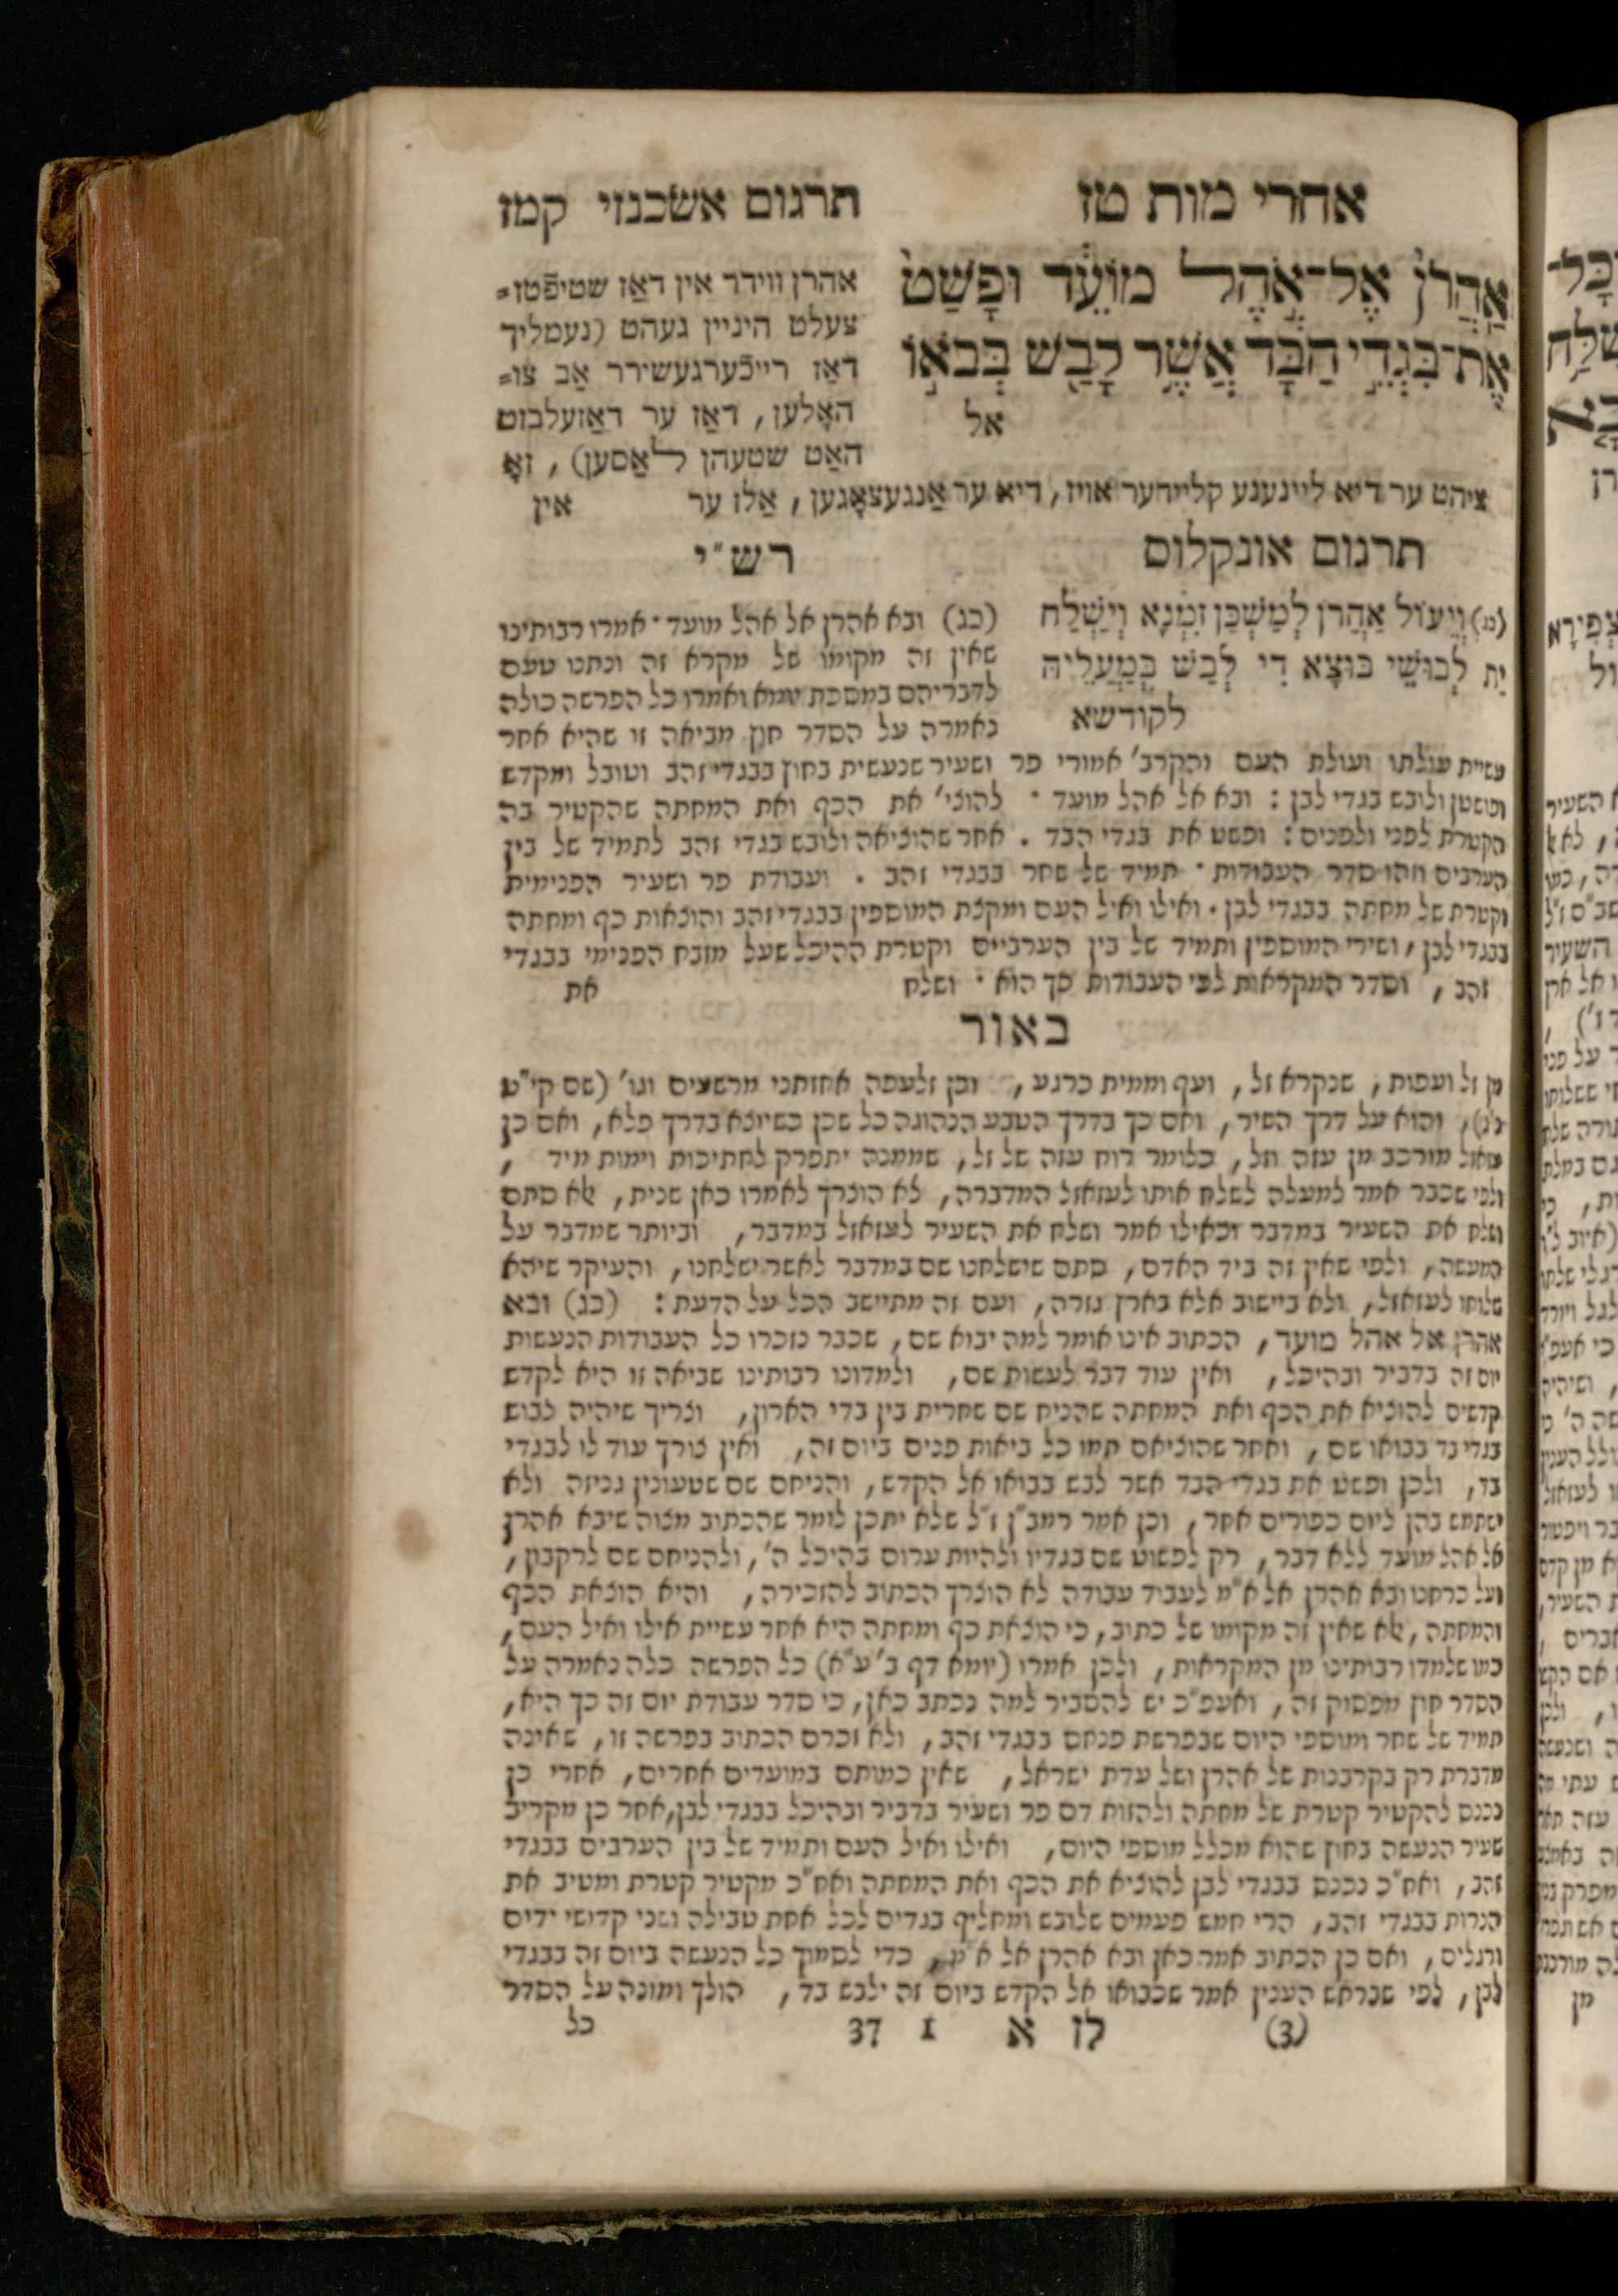 אחרי מות טז
תרגום אשכנזי קמז
אַהֲרֹן֙ אֶל־אֹ֣הֶל מוֹעֵ֔ד וּפָשַׁט֙
אֶת־בִּגְדֵ֣י הַבָּ֔ד אֲשֶׁ֥ר לָבַ֖שׁ בְּבֹא֣וֹ
אל
אהרן ווידר אין דאַז שטיפֿטז=
צעלט היניין געהט (נעמליך
דאַז רייכֿערגעשירר אַב צו=
האָלען, דאַז ער דאַזעלבזט
האַט שטעהן לאַסען), זאָ
ציהט ער דיא ליינענע קליידער אויז, דיא ער אַנגעצאָגען, אַלז ער אין
תרגום אונקלוס
(כג) וְיֵעוֹל אַהֲרֹן לְמַשְׁכַּן זִמְנָא וְיַשְׁלַח
יַת לְבוּשֵׁי בוּצָא דִי לְבַשׁ בְּמֵעֲלֵיהּ
לקודשא
רש"י
(כג) ובא אהרן אל אהל מועד · אמרו רבותינו
שאין זה מקומו של מקרא זה ונתנו טעם
לדבריהם במסכת יומא ואמרו כל הפרשה כולה
נאמרה על הסדר חוץ מביאה זו שהיא אחר
עשיית עולתו ועולת העם והקרב' אמורי פר ושעיר שנעשית בחוץ בבגדי זהב וטובל ומקדש
ופושטן ולובש בגדי לבן : ובא אל אהל מועד · להוצי' את הכף ואת המחתה שהקטיר בה
הקטרת לפני ולפנים : ופשט את בגדי הבד . אחר שהוציאה ולובש בגדי זהב לתמיד של בין
הערבים וזהו סדר העבודות · תמיד של שחר בבגדי זהב . ועבודת פר ושעיר הפנימית
וקטרת של מחתה בבגדי לבן · ואילו ואיל העם ומקצת המוספין בבגדי זהב והוצאות כף ומחתה
בבגדי לבן, ושירי המוספין ותמיד של בין הערבים וקטרת ההיכל שעל מזבח הפנימי בבגדי
זהב, וסדר המקראות לפי העבודות כך הוא · ושלח את
באור
מן זל ועפות, שנקרא זל, ועף וממית כרגע, וכן זלעפה אחזתני מרשעים וגו' (שם קי"ט
נ"ג), והוא על דרך השיר, ואם כך בדרך הטבע הנהוגה כל שכן כשיוצא בדרך פלא, ואם כן
עזאזל מורכב מן עזה וזל, כלומר רוח עזה של זל, שממנה יתפרק לחתיכות וימות מיד,
ולפי שכבר אמר למעלה לשלח אותו לעזאזל המדברה, לא הוצרך לאמרו כאן שנית, אלא סתם
ושלח את השעיר במדבר וכאילו אמר ושלח את השעיר לעזאזל במדבר, וביותר שמדבר על
המעשה, ולפי שאין זה ביד האדם, סתם שישלחנו שם במדבר לאשר ישלחנו, והעיקר שיהא
שלוחו לעזאזל, ולא ביישוב אלא בארץ גזרה, ועם זה מתיישב הכל על הדעת : (כג) ובא
אהרן אל אהל מועד, הכתוב אינו אומר למה יבוא שם, שכבר נזכרו כל העבודות הנעשות
יום זה בדביר ובהיכל, ואין עוד דבר לעשות שם, ולמדונו רבותינו שביאה זו היא לקדש
קדשים להוציא את הכף ואת המחתה שהניח שם שחרית בין בדי הארון, וצריך שיהיה לבוש
בגדי בד בבואו שם, ואחר שהוציאם תמו כל ביאות פנים ביום זה, ואין צורך עוד לו לבגדי
בד, ולכן ופשט את בגדי הבד אשר לבש בבואו אל הקדש, והניחם שם שטעונין גניזה ולא
ישתמש בהן ליום כפורים אחר, וכן אמר רמב"ן ז"ל שלא יתכן לומר שהכתוב מצוה שיבא אהרן
אל אהל מועד ללא דבר, רק לפשוט שם בגדיו ולהיות ערום בהיכל ה', ולהניחם שם לרקבון,
ועל כרחנו ובא אהרן אל א"מ לעבוד עבודה לא הוצרך הכתוב להזכירה, והיא הוצאת הכף
והמחתה, אלא שאין זה מקומו של כתוב, כי הוצאת כף ומחתה היא אחר עשיית אילו ואיל העם,
כמו שלמדו רבותינו מן המקראות, ולכן אמרו (יומא דף ב' ע"א) כל הפרשה כלה נאמרה על
הסדר חוץ מפסוק זה, ואעפ"כ יש להסביר למה נכתב כאן, כי סדר עבודת יום זה כך היא,
תמיד של שחר ומוספי היום שבפרשת פנחס בבגדי זהב, ולא זכרם הכתוב בפרשה זו, שאינה
מדברת רק בקרבנות של אהרן ושל עדת ישראל, שאין כמותם במועדים אחרים, אחרי כן
נכנס להקטיר קטרת של מחתה ולהזות דם פר ושעיר בדביר ובהיכל בבגדי לבן, אחר כן מקריב
שעיר הנעשה בחוץ שהוא מכלל מוספי היום, ואילו ואיל העם ותמיד של בין הערבים בבגדי
זהב, ואח"כ נכנס בבגדי לבן להוציא את הכף ואת המחתה ואח"כ מקטיר קטרת ומטיב את
הנרות בבגדי זהב, הרי חמש פעמים שלובש ומחליף בגדים לכל אחת טבילה ושני קדושי ידים
ורגלים, ואם כן הכתוב אמר כאן ובא אהרן אל א"מ, כדי לסמוך כל הנעשה ביום זה בבגדי
לבן, לפי שבראש הענין אמר שבבואו אל הקדש ביום זה ילבש בד, הולך ומונה על הסדר
(3) לז א 1 37 כל